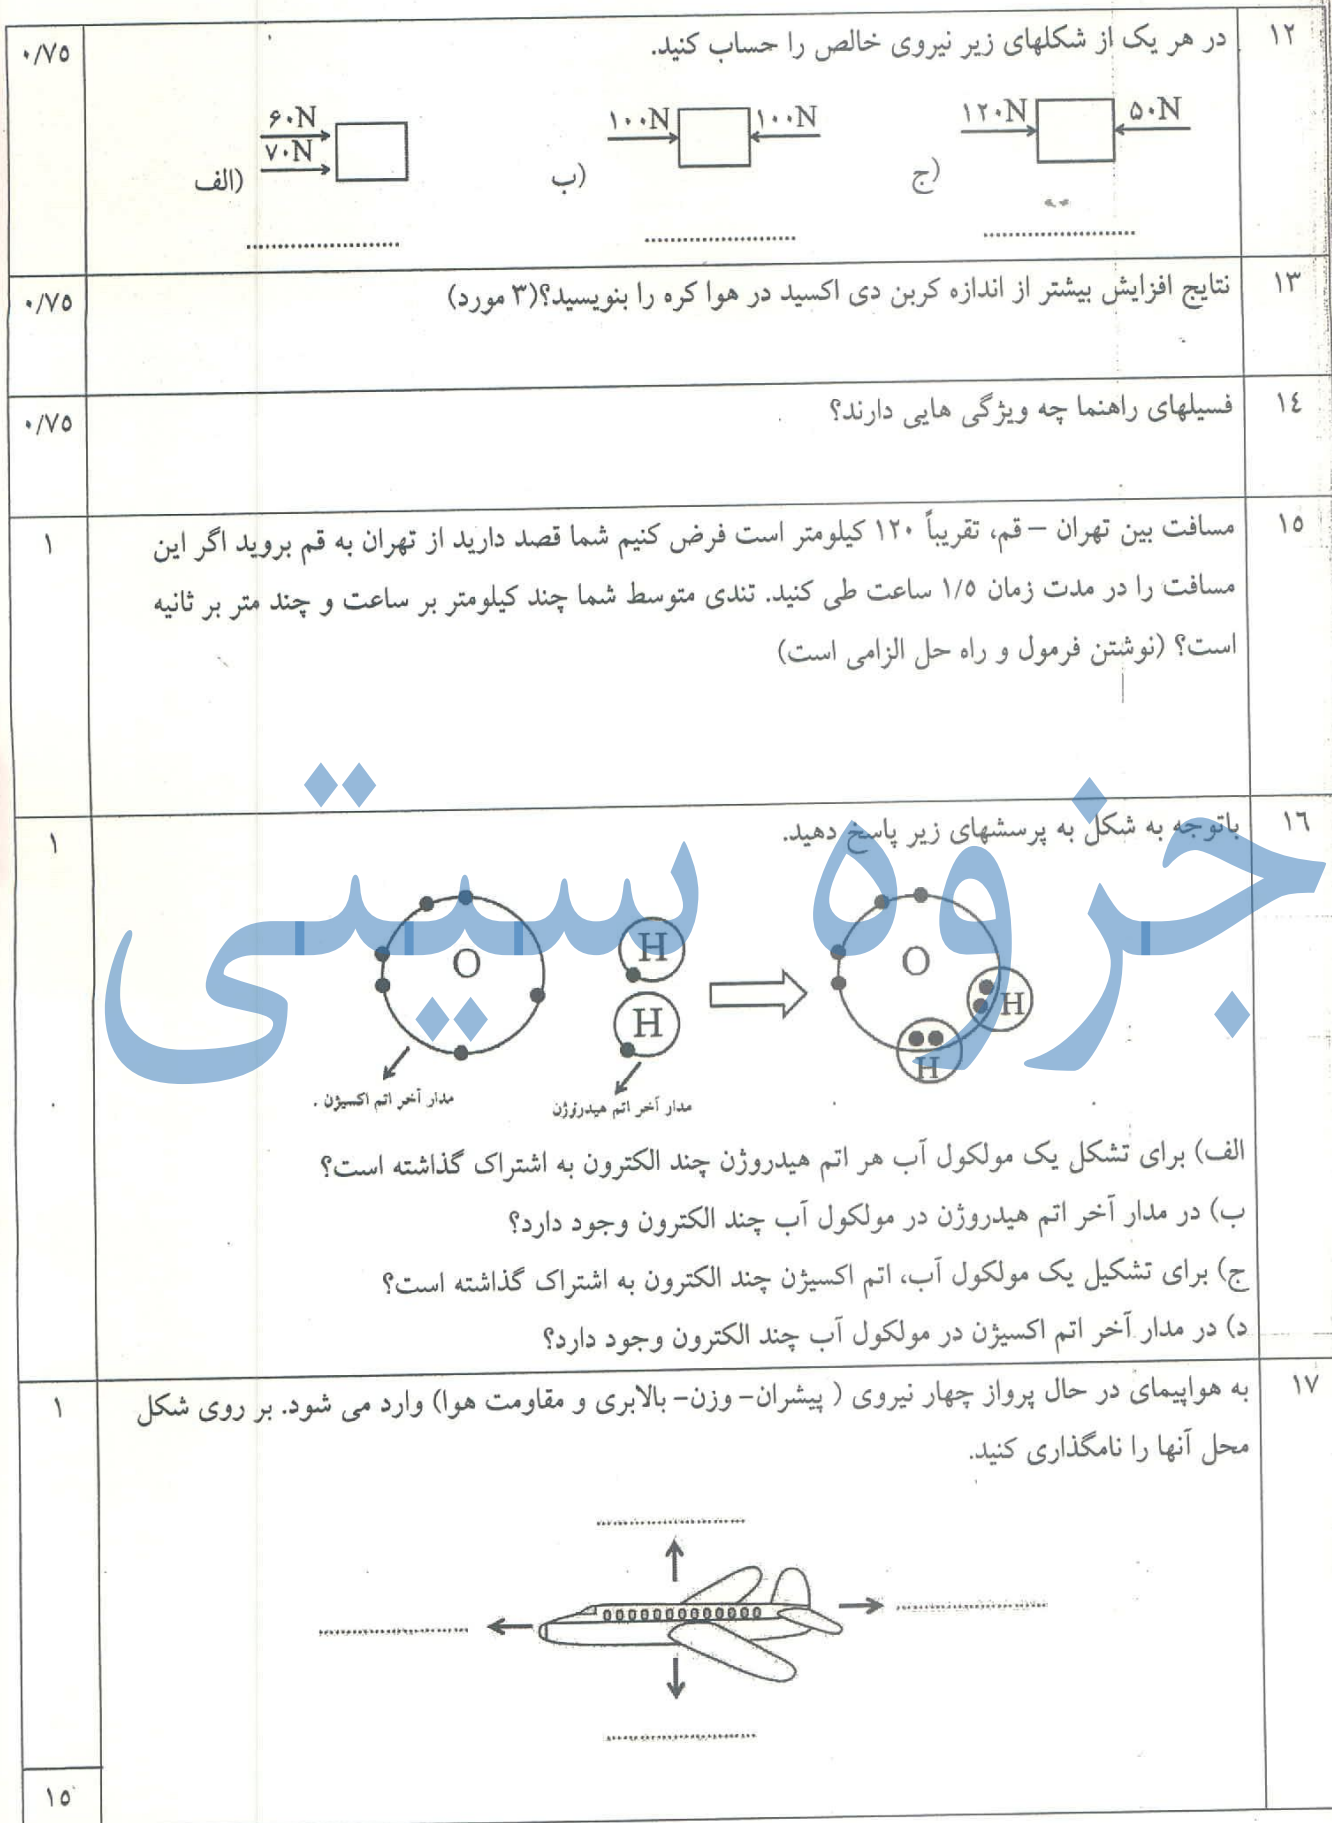 ۱۲
در هر یک از شکلهای زیر نیروی خالص را حساب کنید.
۰/۷۵
۱۲۰N
۵۰N
ج)
۱۰۰N
۱۰۰N
ب)
۶۰N
۷۰N
الف)
........................
........................
........................
۱۳
نتایج افزایش بیشتر از اندازه کربن دی اکسید در هوا کره را بنویسید؟(۳ مورد)
۰/۷۵
۱٤
فسیلهای راهنما چه ویژگی هایی دارند؟
۰/۷۵
۱٥
مسافت بین تهران – قم، تقریباً ۱۲۰ کیلومتر است فرض کنیم شما قصد دارید از تهران به قم بروید اگر این
۱
مسافت را در مدت زمان ۱/٥ ساعت طی کنید. تندی متوسط شما چند کیلومتر بر ساعت و چند متر بر ثانیه
است؟ (نوشتن فرمول و راه حل الزامی است)
جزوه سیتی
۱٦
باتوجه به شکل به پرسشهای زیر پاسخ دهید.
۱
O
H
H
O
H
H
مدار آخر اتم هیدروژن
مدار آخر اتم اکسیژن .
الف) برای تشکل یک مولکول آب هر اتم هیدروژن چند الکترون به اشتراک گذاشته است؟
ب) در مدار آخر اتم هیدروژن در مولکول آب چند الکترون وجود دارد؟
ج) برای تشکیل یک مولکول آب، اتم اکسیژن چند الکترون به اشتراک گذاشته است؟
د) در مدار آخر اتم اکسیژن در مولکول آب چند الکترون وجود دارد؟
۱۷
به هواپیمای در حال پرواز چهار نیروی ( پیشران- وزن- بالابری و مقاومت هوا) وارد می شود. بر روی شکل
۱
محل آنها را نامگذاری کنید.
........................
........................
........................
........................
۱٥